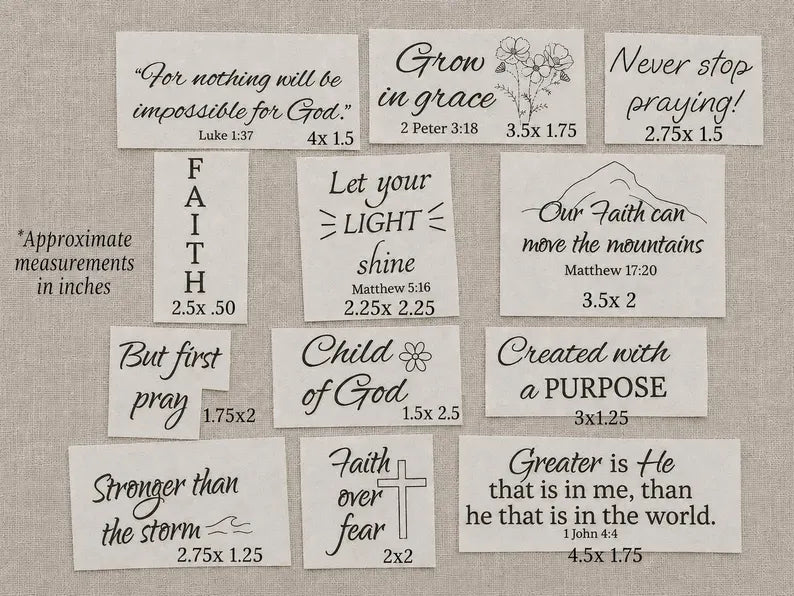 “For nothing will be
impossible for God.”
Luke 1:37
4x 1.5
Grow
in grace
2 Peter 3:18
3.5x 1.75
Never stop
praying!
2.75x 1.5
F
A
I
T
H
2.5x .50
Let your
LIGHT
shine
Matthew 5:16
2.25x 2.25
Our Faith can
move the mountains
Matthew 17:20
3.5x 2
*Approximate
measurements
in inches
But first
pray
1.75x2
Child
of God
1.5x 2.5
Created with
a PURPOSE
3x1.25
Stronger than
the storm
2.75x 1.25
Faith
over
fear
2x2
Greater is He
that is in me, than
he that is in the world.
1 John 4:4
4.5x 1.75